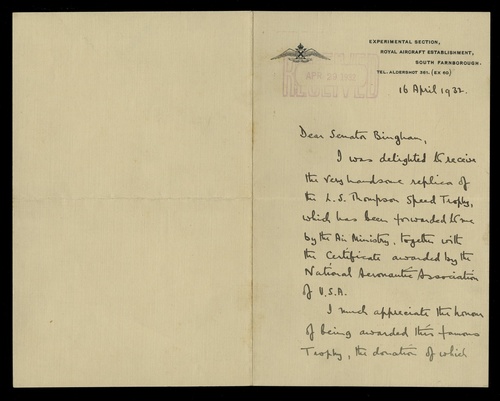 EXPERIMENTAL SECTION,
ROYAL AIRCRAFT ESTABLISHMENT,
SOUTH FARNBOROUGH.
TEL. ALDERSHOT 361. (EX 60)
APR 29 1932
RECEIVED
16 April 1932.
Dear Senator Bingham,
I was delighted to receive
the very handsome replica of
the L.S. Thompson Speed Trophy,
which has been forwarded to me
by the Air Ministry, together with
the Certificate awarded by the
National Aeronautic Association
of U.S.A.
I much appreciate the honour
of being awarded this famous
Trophy, the donation of which